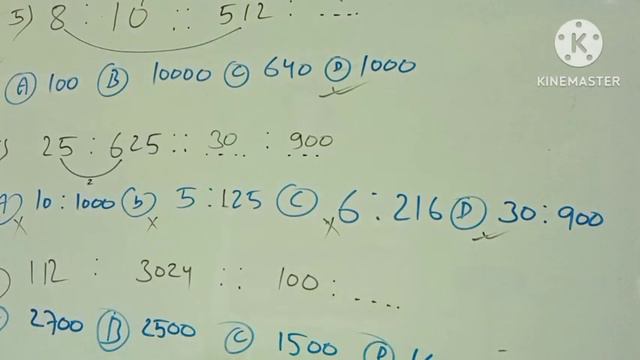 5) 8 : 10 :: 512 : ....
KINEMASTER
(A) 100 (B) 10000 (C) 640 (D) 1000
25 : 625 :: 30 : 900
2
10 : 1000 (b) 5 : 125 (C) 6 : 216 (D) 30 : 900
112 : 3024 :: 100 : ....
2700 (B) 2500 (C) 1500 (D)